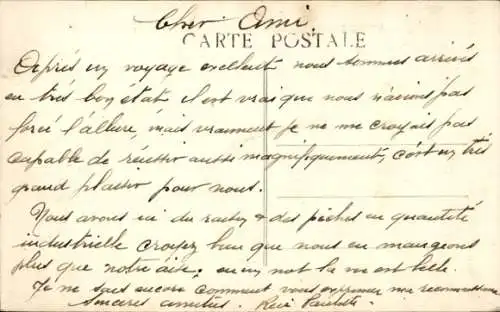 Cher Ami,
CARTE POSTALE
Après un voyage excellent nous sommes arrivés
en très bon état. il est vrai que nous n'avions pas
forcé l'allure, mais vraiment je ne me croyais pas
capable de réussir aussi magnifiquement, c'est un très
grand plaisir pour nous.
Nous avons ici du raisin & des pêches en quantité
industrielle croyez bien que nous en mangeons
plus que notre aise; en un mot la vie est belle.
Je ne sais encore comment vous exprimer ma reconnaissance
Sincères amitiés.